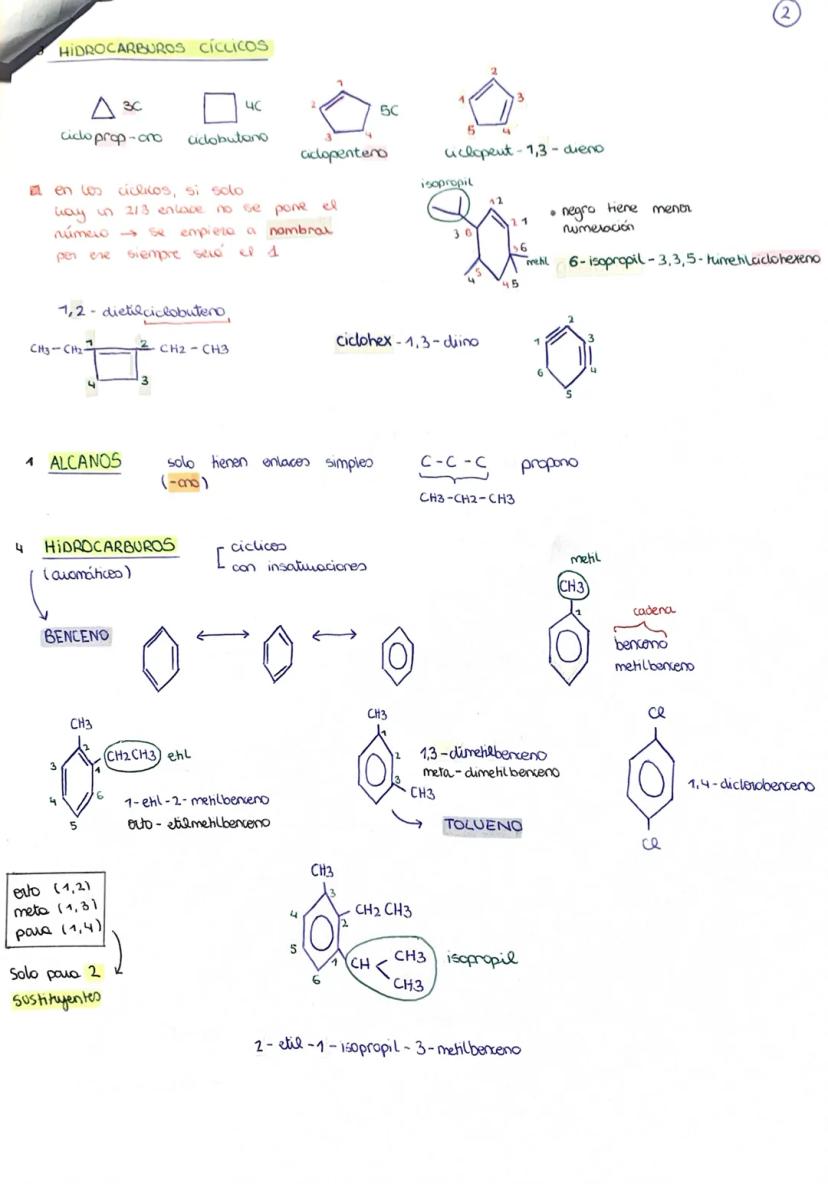 2
3 HIDROCARBUROS CÍCLICOS
3C
cicloprop-ano
4C
ciclobutano
1
2
3
4
5C
ciclopenteno
2
1
3
5
4
ciclopent-1,3-dieno
en los cíclicos, si solo
hay un 2/3 enlace no se pone el
número → se empieza a nombrar
por ese siempre será el 1
isopropil
1 2
2 1
3 6
3 6
4 5
4 5
metil
• negro tiene menor
numeración
6-isopropil-3,3,5-trimetilciclohexeno
1,2-dietilciclobuteno
CH3-CH2
1
2
CH2-CH3
4
3
ciclohex-1,3-diino
2
1
3
6
4
5
1 ALCANOS
solo tienen enlaces simples
(-ano)
C-C-C
propano
CH3-CH2-CH3
4 HIDROCARBUROS
(aromáticos)
cíclicos
con insaturaciones
BENCENO
metil
CH3
1
cadena
benceno
metilbenceno
CH3
2
CH2CH3
etil
3
1
4
6
5
1-etil-2-metilbenceno
orto-etilmetilbenceno
CH3
1
2
3
CH3
1,3-dimetilbenceno
meta-dimetilbenceno
TOLUENO
Cl
1,4-diclorobenceno
Cl
orto (1,2)
meta (1,3)
para (1,4)
Solo para 2
sustituyentes
CH3
3
4
CH2CH3
2
5
1
6
CH
CH3
CH3
isopropil
2-etil-1-isopropil-3-metilbenceno